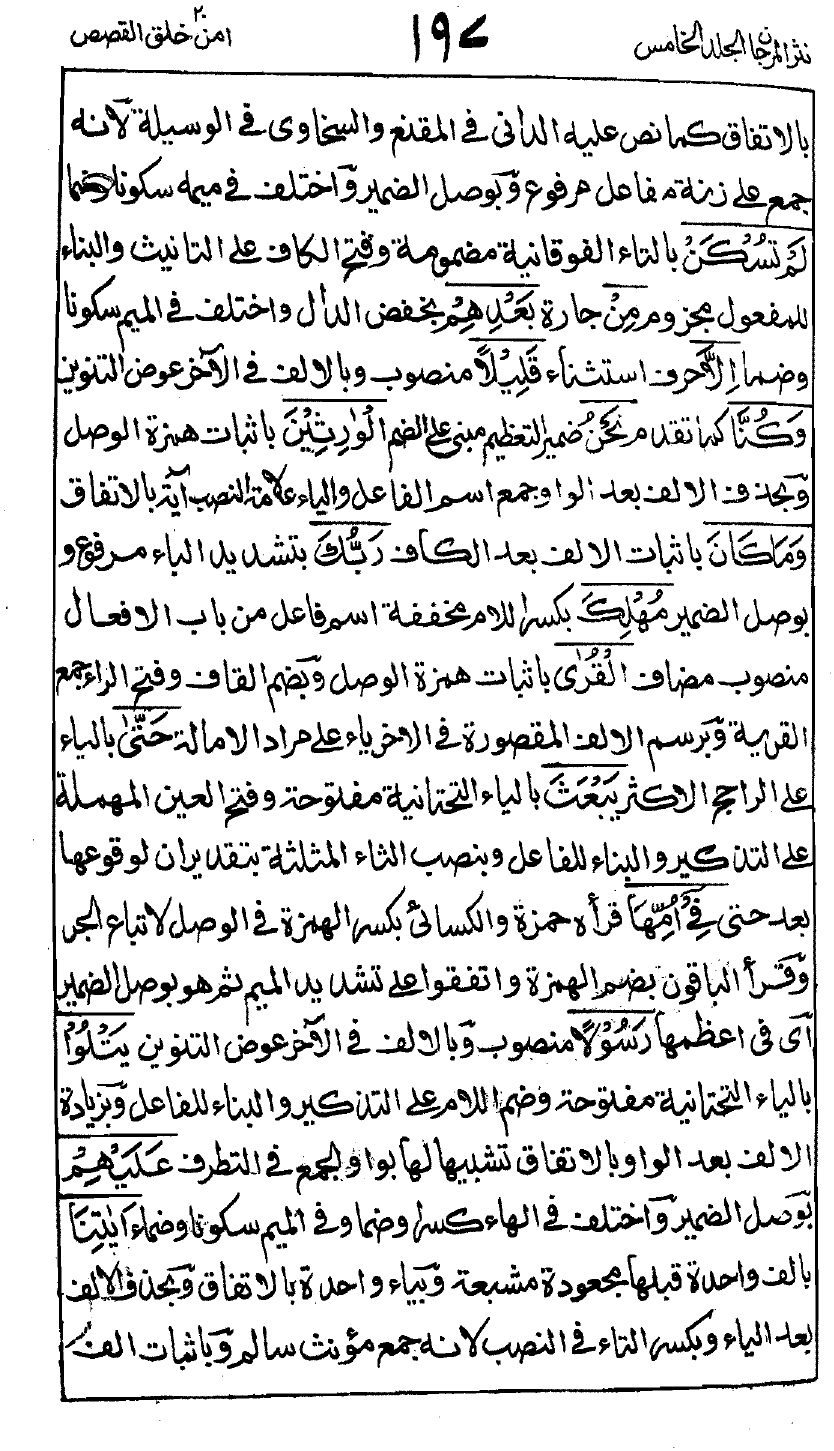 نثر المرجان الجلد الخامس
١٩٧
امن ٢٠ خلق القصص
بالاتفاق كما نص عليه الدانى فى المقنع والسخاوى فى الوسيلة لانه
جمع على زنة مفاعل مرفوع وبوصل الضمير واختلف فى ميمه سكونا وضما
لَمْ تُسْكَنْ بالتاء الفوقانية مضمومة وفتح الكاف على التانيث والبناء
للمفعول مجزوم مِنْ جارة بَعْدِهِمْ بخفض الدال واختلف فى الميم سكونا
وضما اِلَّا حرف استثناء قَلِيْلًا منصوب وبالالف فى الآخر عوض التنوين
وَكُنَّا كما تقدم نَحْنُ ضمير التعظيم مبنى على الضم الْوٰرِثِيْنَ باثبات همزة الوصل
وبحذف الالف بعد الواو جمع اسم الفاعل والياء علامة النصب آية بالاتفاق
وَمَا كَانَ باثبات الالف بعد الكاف رَبُّكَ بتشديد الباء مرفوع و
بوصل الضمير مُهْلِكَ بكسر اللام مخففة اسم فاعل من باب الافعال
منصوب مضاف الْقُرٰى باثبات همزة الوصل وبضم القاف وفتح الراء جمع
القرية وبرسم الالف المقصورة فى الاخر ياء على مراد الامالة حَتّٰى بالياء
على الراجح الاكثر يَبْعَثَ بالياء التحتانية مفتوحة وفتح العين المهملة
على التذكير والبناء للفاعل وبنصب الثاء المثلثة بتقدير ان لوقوعها
بعد حتى فِىْ اُمِّهَا قرأه حمزة والكسائى بكسر الهمزة فى الوصل لاتباع الجر
وقرأ الباقون بضم الهمزة واتفقوا على تشديد الميم ثم هو بوصل الضمير
اى فى اعظمها رَسُوْلًا منصوب وبالالف فى الآخر عوض التنوين يَتْلُوْا
بالياء التحتانية مفتوحة وضم اللام على التذكير والبناء للفاعل وبزيادة
الالف بعد الواو بالاتفاق تشبيها لها بواو الجمع فى التطرف عَلَيْهِمْ
بوصل الضمير واختلف فى الهاء كسرا وضما وفى الميم سكونا وضما ءَايٰتِنَا
بالف واحدة قبلها مجعودة مشبعة وبياء واحدة بالاتفاق وبحذف الالف
بعد الياء وبكسر التاء فى النصب لانه جمع مؤنث سالم وباثبات الف